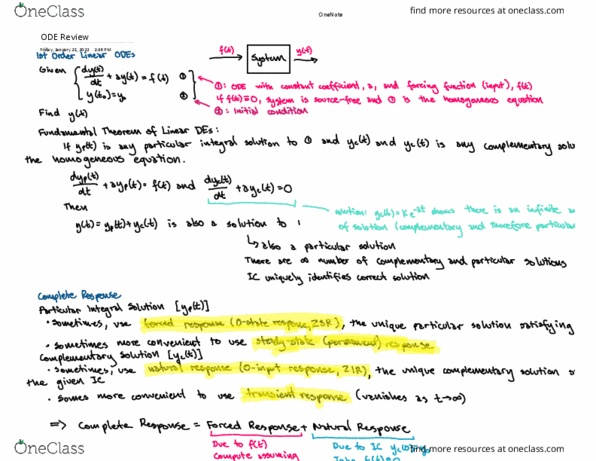 OneClass
find more resources at oneclass.com
OneNote
ODE Review
Friday, January 21, 2022 2:48 PM
1st Order Linear ODEs
f(t) System y(t)
Given { dy(t)/dt + ay(t) = f(t) ①
y(t₀) = y₀ ②
①: ODE with constant coefficient, a, and forcing function (input), f(t)
If f(t)≡0, system is source-free and ① is the homogeneous equation
②: initial condition
Find y(t)
Fundamental Theorem of Linear DEs:
If yp(t) is any particular integral solution to ① and yc(t) and yc(t) is any complementary solu
the homogeneous equation.
dyp(t)/dt + ayp(t) = f(t) and dyc(t)/dt + ayc(t) = 0
Then
solution: yc(t) = Ke^-at shows there is an infinite
of solution (complementary and therefore particular
y(t) = yp(t) + yc(t) is also a solution to
↳ also a particular solution
There are ∞ number of complementary and particular solutions
IC uniquely identifies correct solution
Complete Response
Particular Integral Solution [yp(t)]
• sometimes, use forced response (0-state response, ZSR), the unique particular solution satisfying
• sometimes more convenient to use steady-state (permanent) response
Complementary Solution [yc(t)]
• sometimes, use natural response (0-input response, ZIR), the unique complementary solution
the given IC
• somes more convenient to use transient response (vanishes as t→∞)
⇒ Complete Response = Forced Response + Natural Response
Due to f(t) Due to IC
Compute assuming
OneClass
find more resources at oneclass.com